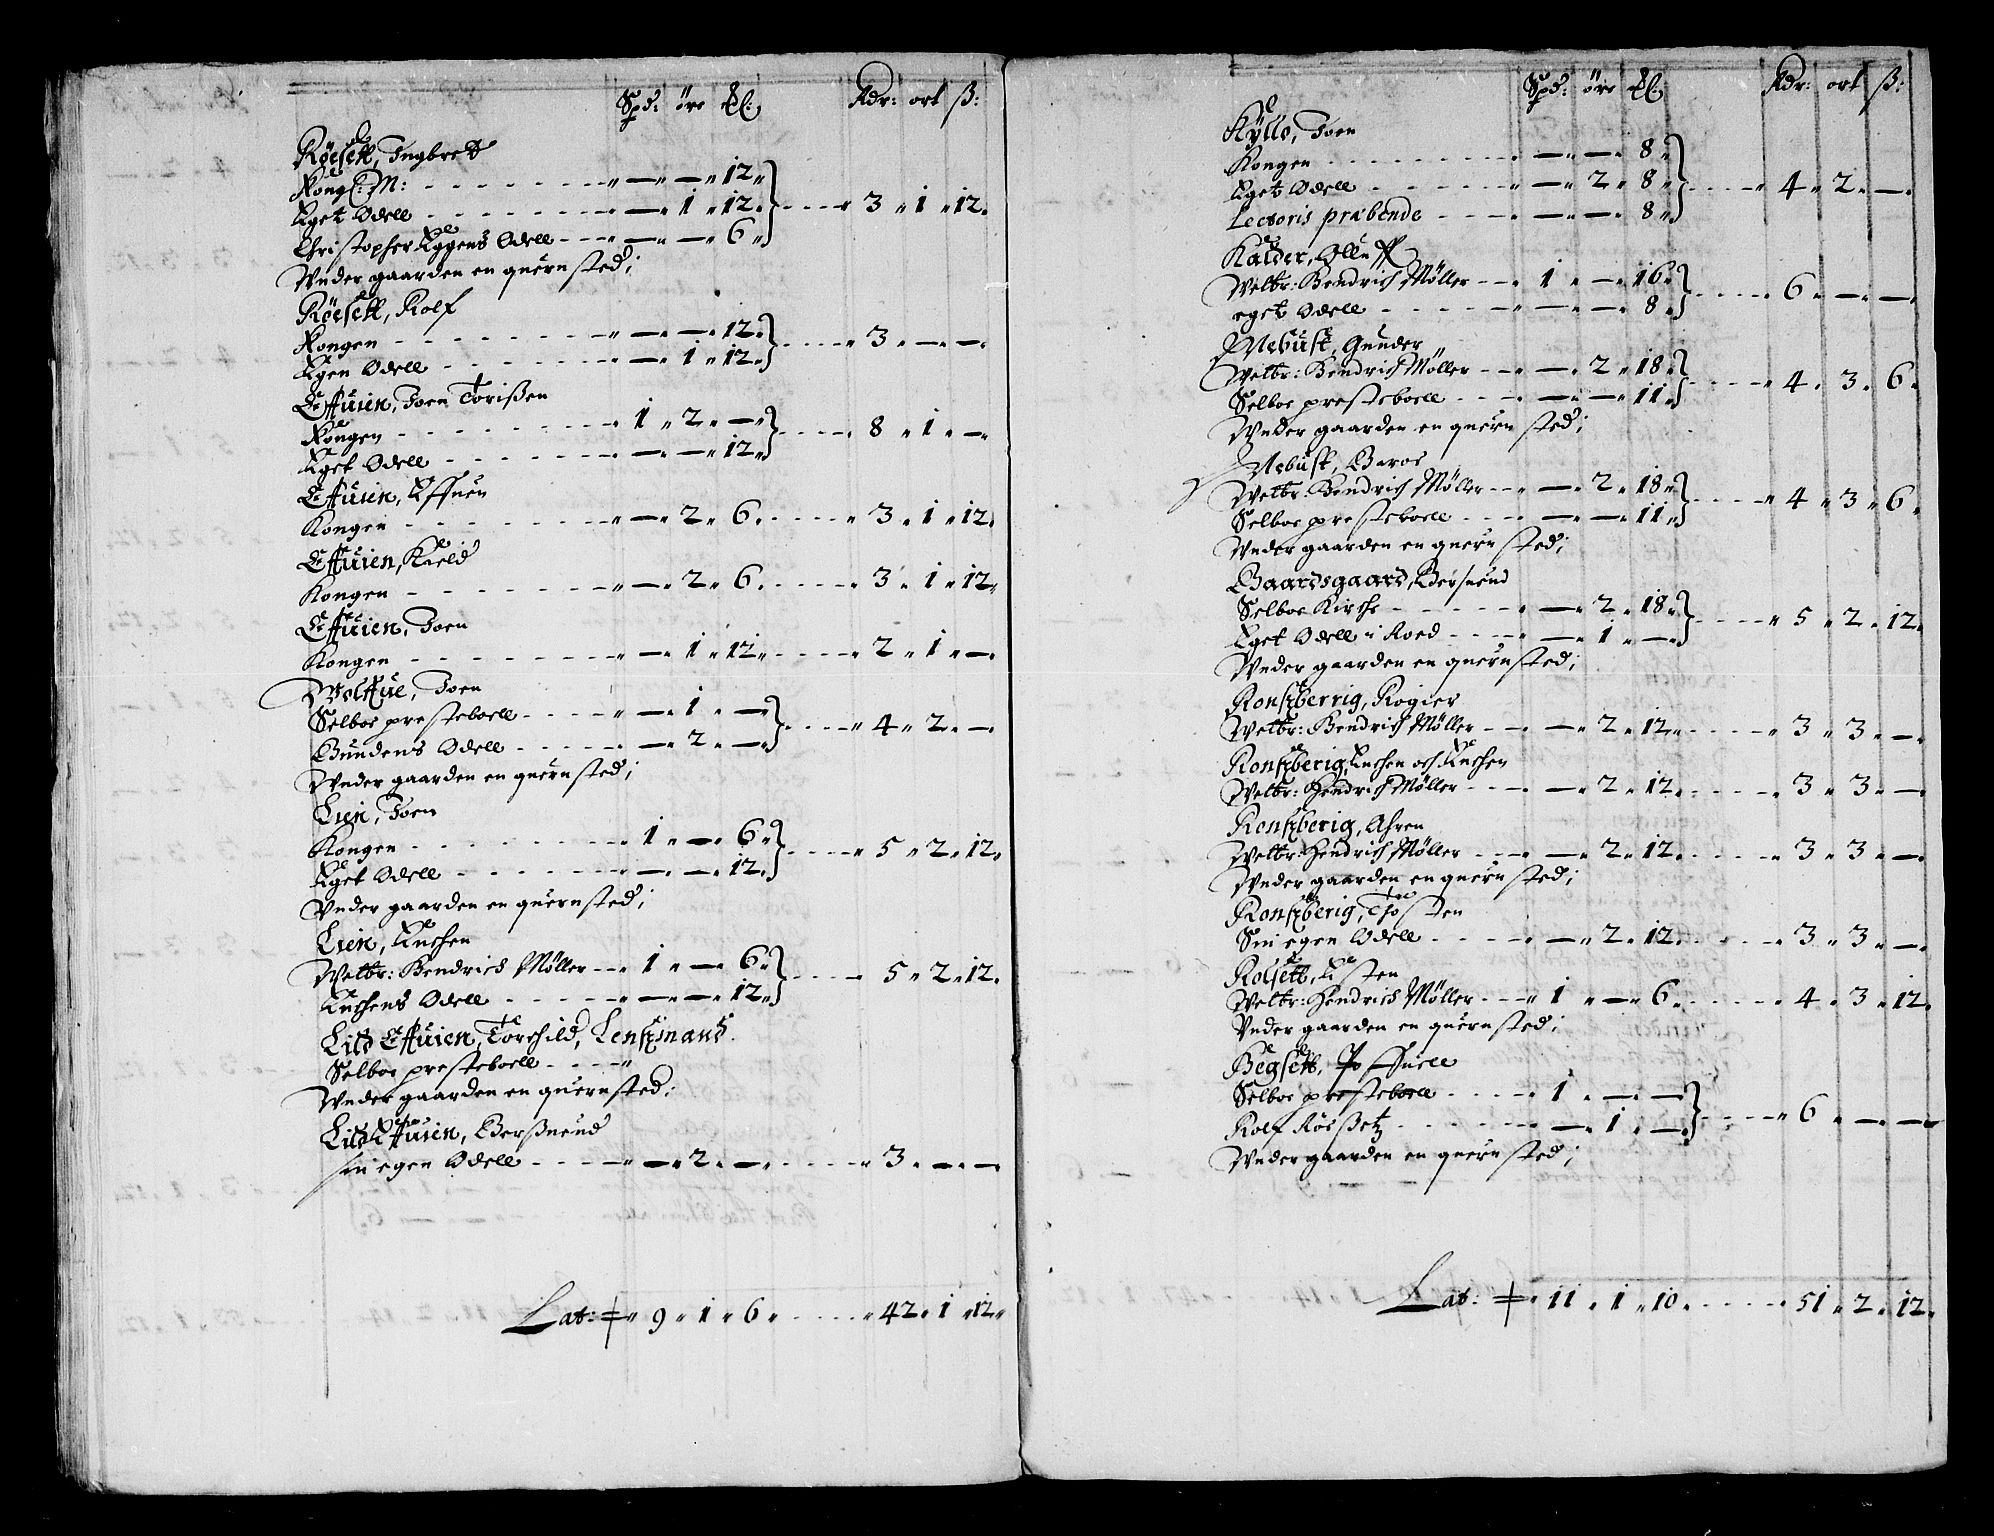 Spd: öre ℔l: Rdr: ort ß:
Röesett, Ingbret
Kongl: M: — — 12
Eget Odell — 1 12 3 1 12
Christopher Eggens Odell — — 6
Vnder gaarden en quernsted;
Röesett, Rolf
Kongen — — 12 3 — —
Egen Odell — 1 12
Effuien, Joen Torißen
Kongen 1 2 — 8 1 —
Eget Odell — — 12
Effuien,
Kongen — 2 6 3 1 12
Effuien, Kield
Kongen — 2 6 3 1 12
Effuien, Joen
Kongen — 1 12 2 1 —
Wolffue, Joen
Selboe presteboell — 1 — 4 2 —
Bundens Odell — 2 —
Vnder gaarden en quernsted;
Lien, Joen
Kongen 1 — 6 5 2 12
Eget Odell — — 12
Vnder gaarden en quernsted;
Lien, Enchen
Welbr: Hendrich Møller 1 — 6 5 2 12
Enchens Odell — — 12
Lild Effuien, Torchild, Lensmand.
Selboe presteboell
Vnder gaarden en quernsted:
Lild Effuien, Berßuend
sin egen Odell — 2 — 3 — —
Lat: 9 1 6 42 1 12
Spd: öre ℔l: Rdr: ort ß:
Kyllo, Joen
Kongen — — 8
Eget Odell — 2 8 4 2 —
Lectoris præbende — — 8
Kalder, Olluff
Welbr: Hendrich Møller 1 — 16 6 — —
eget Odell — — 8
Mebust, Gunder
Welbr: Hendrich Møller — 2 18 4 3 6
Selboe presteboell — — 11
Vnder gaarden en quernsted;
Mebust,
Welbr: Hendrich Møller — 2 18 4 3 6
Selboe presteboell — — 11
Vnder gaarden en quernsted;
Baardsgaard, Bersuend
Selboe Kirche — 2 18 5 2 12
Eget Odell i Roed — 1 —
Vnder gaarden en quernsted;
Ronsberrig, Rogier
Welbr: Hendrich Møller — 2 12 3 3 —
Ronsberig, Enchen och Enchen
Welbr: Hendrich Møller — 2 12 3 3 —
Ronsberig, Ahren
Welbr: Hendrich Møller — 2 12 3 3 —
Vnder gaarden en quernsted;
Ronsberig, Tosten
Sin egen Odell — 2 12 3 3 —
Rolsett, Esten
Welbr: Hendrich Møller 1 — 6 4 3 12
Vnder gaarden en quernsted;
Begsett, Poffuell
Selboe presteboell 1 — — 6 — —
Rolf Rösßetz — 1 —
Vnder gaarden en quernsted;
Lat: 11 1 10 51 2 12